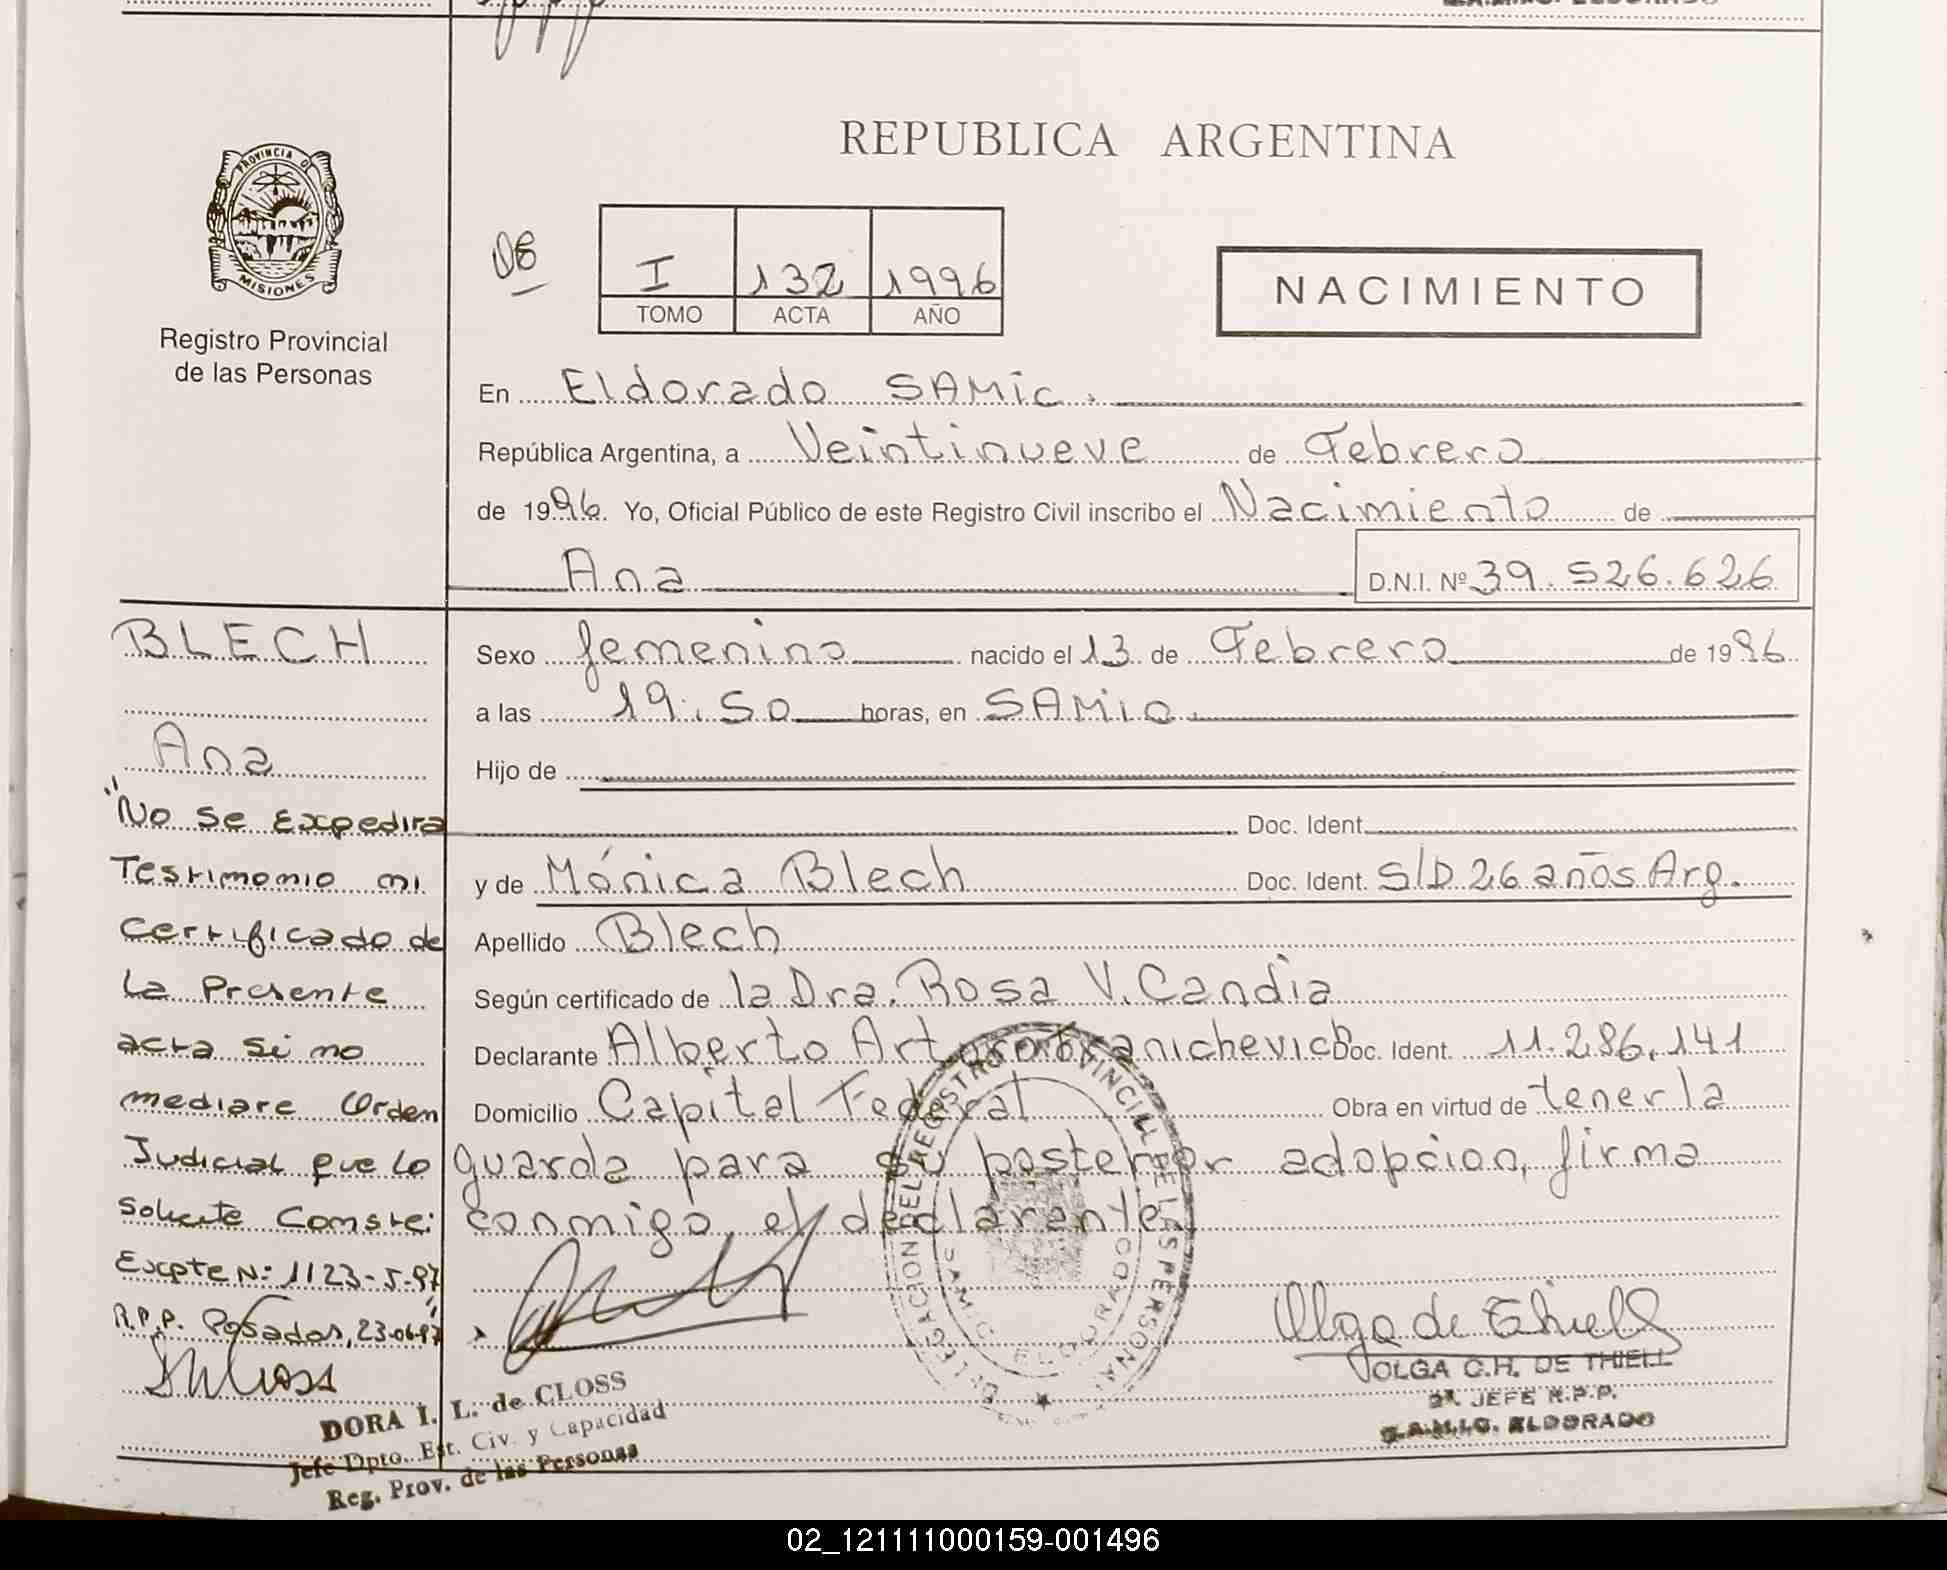 PROVINCIA DE
MISIONES
Registro Provincial
de las Personas
REPUBLICA ARGENTINA
I 132 1996
TOMO ACTA AÑO
NACIMIENTO
En Eldorado SAMic.
República Argentina, a Veintinueve de Febrero
de 1996. Yo, Oficial Público de este Registro Civil inscribo el Nacimiento de
Ana D.N.I. Nº 39.526.626
BLECH
Ana
"No se Expedira
Testimonio ni
certificado de
la Presente
acta si no
mediare Orden
Judicial que lo
Solicite Conste:
Excpte N: 1123-5-97
R.P.P. Posadas, 23-06-97"
Sexo femenino nacido el 13 de Febrero de 1996
a las 19:50 horas, en SAMic.
Hijo de
Doc. Ident.
y de Mónica Blech Doc. Ident. S/D 26 años Arg.
Apellido Blech
Según certificado de la Dra. Rosa V. Candia
Declarante Alberto Arturo Doc. Ident. 11.286.141
Domicilio Capital Federal Obra en virtud de tenerla
guarda para su posterior adopcion, firma
conmigo el declarante
DELEGACION DEL REGISTRO PROVINCIAL DE LAS PERSONAS
SAMIC ELDORADO
Olga de Thiell
OLGA C.H. DE THIELL
2ª JEFE R.P.P.
S.A.M.I.C. ELDORADO
DORA I. L. de CLOSS
Jefe Dpto. Est. Civ. y Capacidad
Reg. Prov. de las Personas
02_121111000159-001496